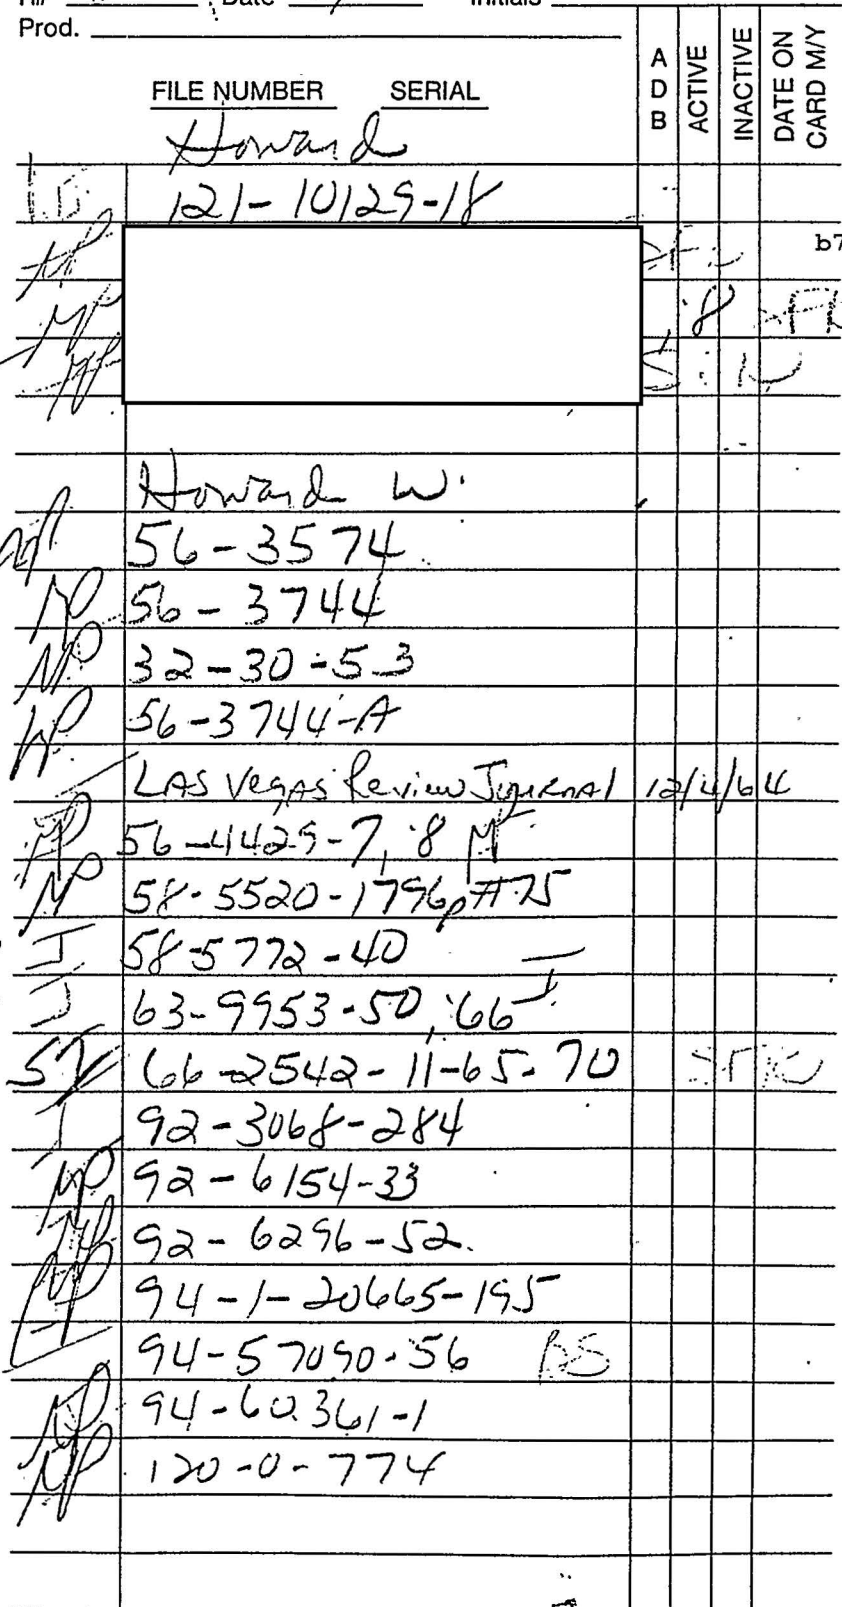 Date Initials
Prod.
FILE NUMBER SERIAL
A D B ACTIVE INACTIVE DATE ON CARD M/Y
Howard
121-10129-18
b7
Howard W.
56-3574
NP 56-3744
NP 32-30-53
NP 56-3744-A
LAS Vegas Review Journal 12/4/64
NP 56-4429-7, 8
NP 58-5520-1796p#75
I 58-5772-40
I 63-9953-50, 66 I
66-2542-11-65-70
I 92-3068-284
NP 92-6154-33
NP 92-6296-52
NP 94-1-20665-195
94-57090-56 BS
NP 94-60361-1
NP 120-0-774